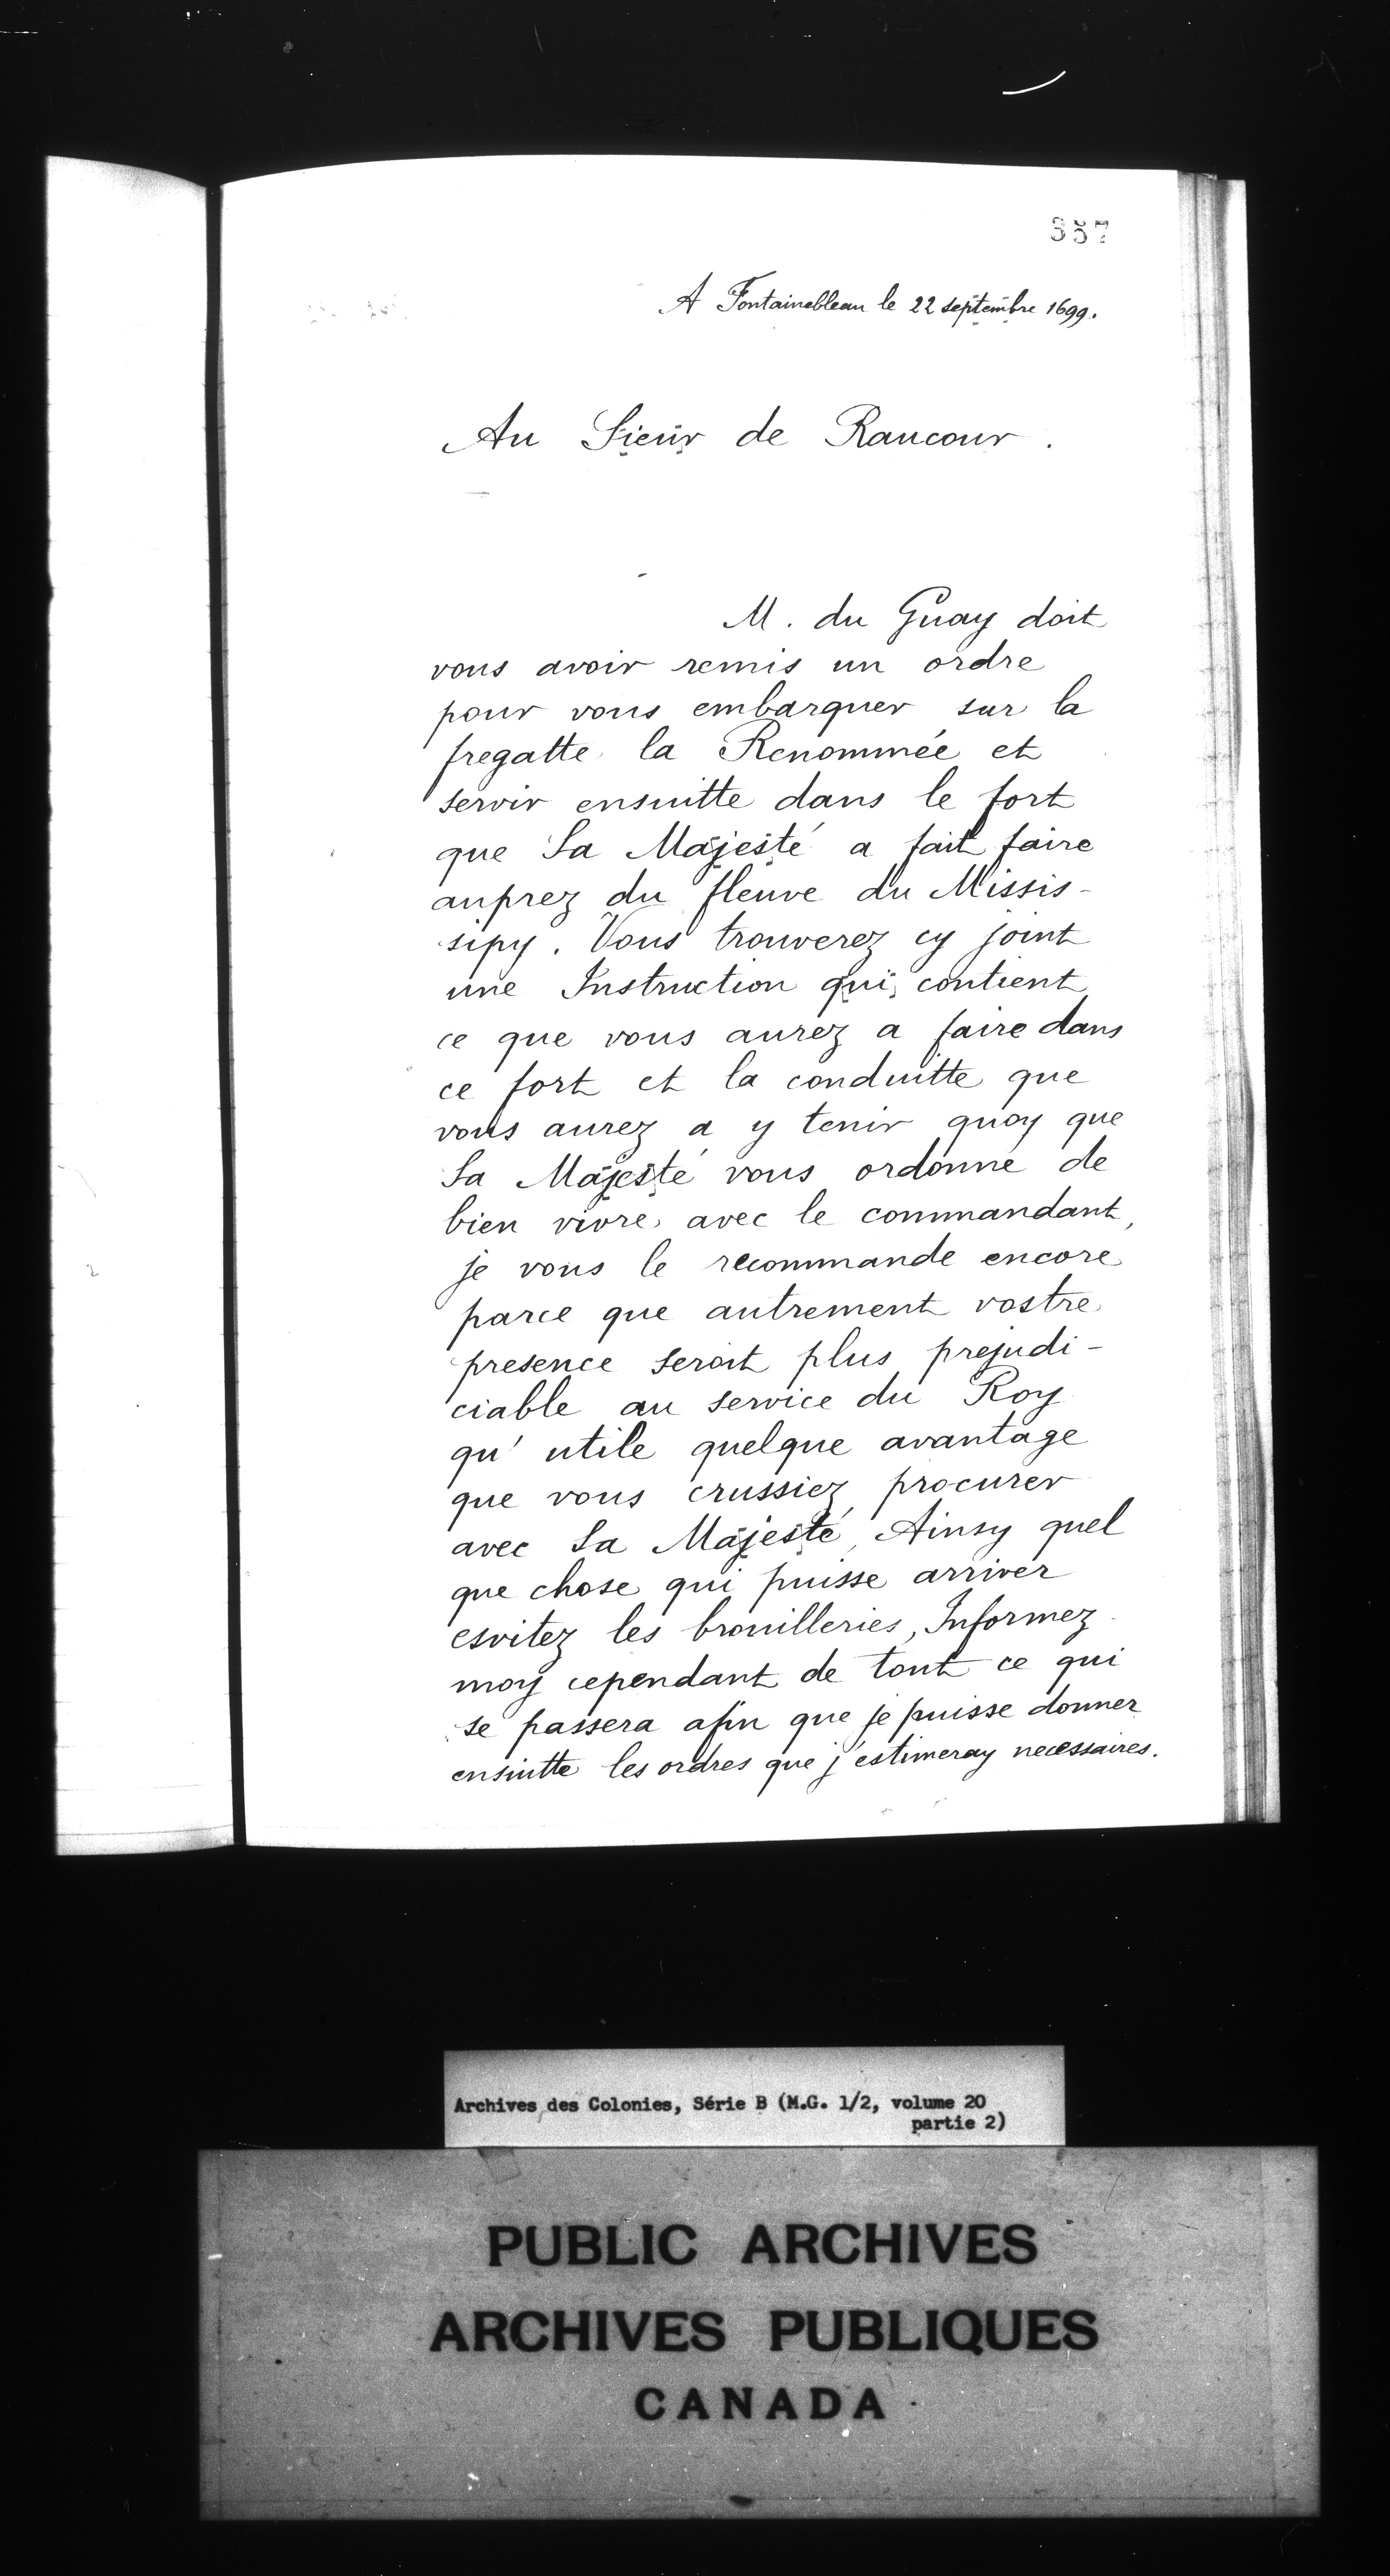 357
A Fontainebleau le 22 septembre 1699.
Au Sieur de Raucour.
M. du Guay doit
vous avoir remis un ordre
pour vous embarquer sur la
fregatte la Renommée et
servir ensuitte dans le fort
que Sa Majesté a fait faire
auprez du fleuve du Missis-
sipy. Vous trouverez cy joint
une Instruction qui contient
ce que vous aurez a faire dans
ce fort et la conduitte que
vous aurez a y tenir quoy que
Sa Majesté vous ordonne de
bien vivre avec le commandant,
je vous le recommande encore
parce que autrement vostre
presence seroit plus prejudi-
ciable au service du Roy
qu'utile quelque avantage
que vous crussiez procurer
avec Sa Majesté, Ainsy quel
que chose qui puisse arriver
esvitez les brouilleries, Informez
moy cependant de tout ce qui
se passera afin que je puisse donner
ensuitte les ordres que j'estimeray necessaires.
Archives des Colonies, Série B (M.G. 1/2, volume 20
partie 2)
PUBLIC ARCHIVES
ARCHIVES PUBLIQUES
CANADA